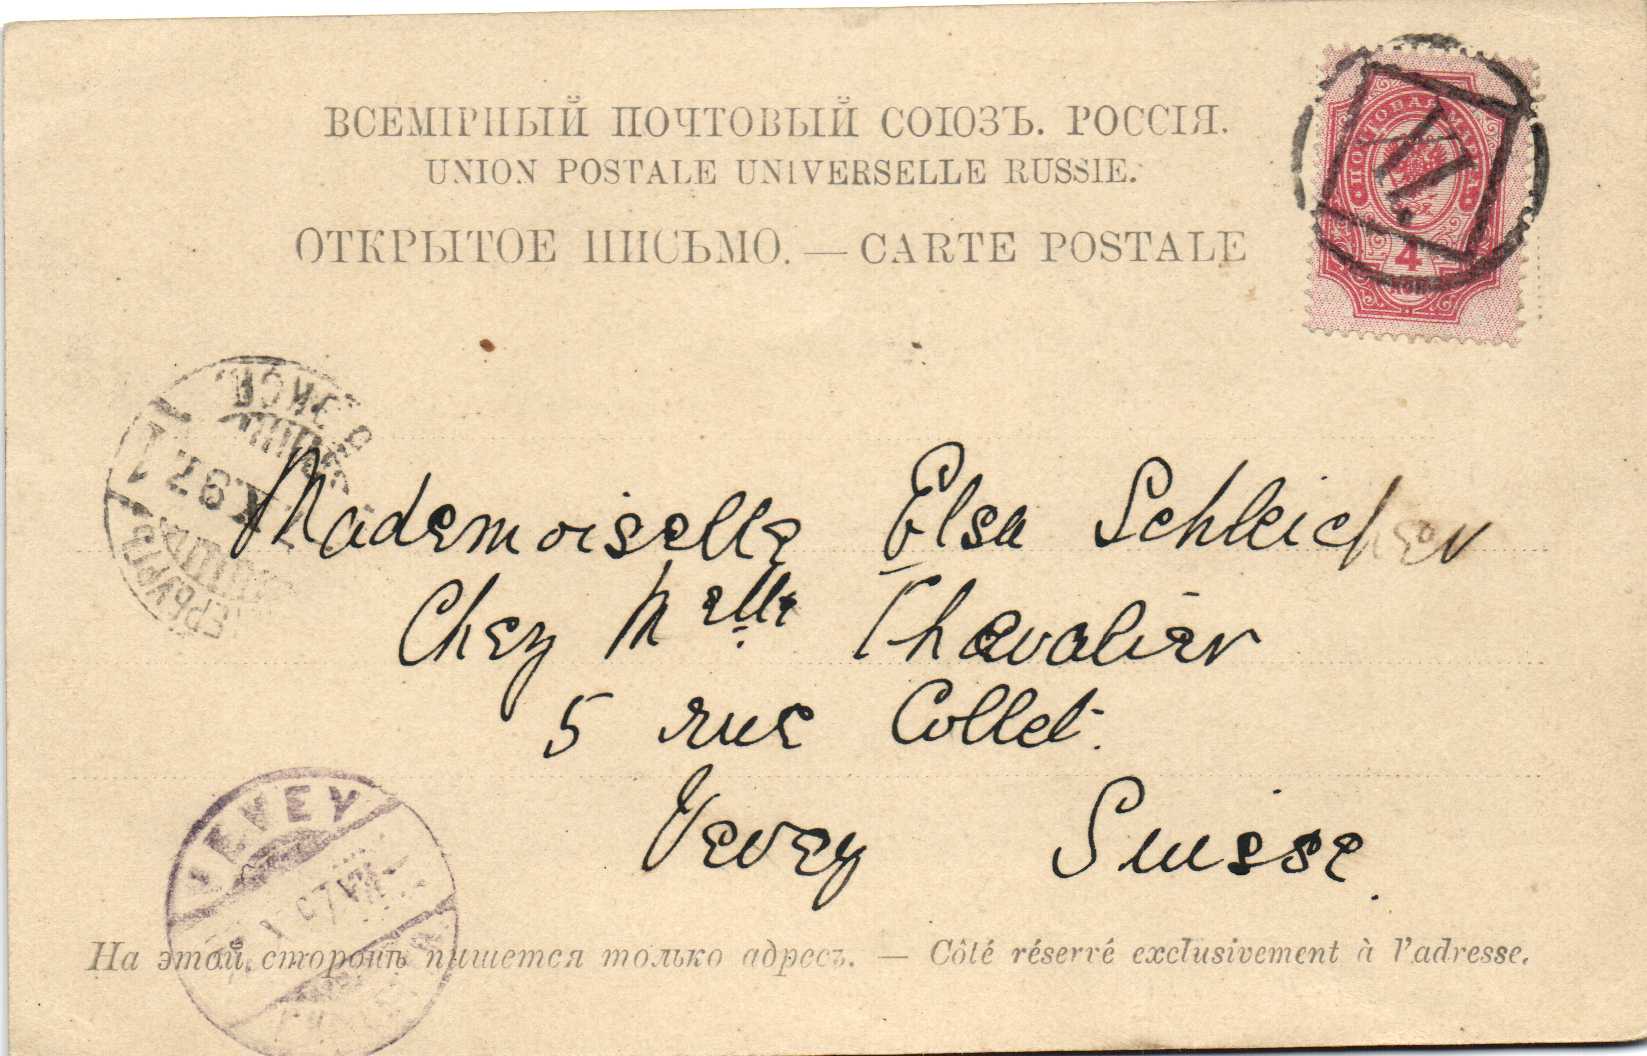 ВСЕМІРНЫЙ ПОЧТОВЫЙ СОЮЗЪ. РОССІЯ.
UNION POSTALE UNIVERSELLE RUSSIE.
ОТКРЫТОЕ ПИСЬМО. — CARTE POSTALE
ПОЧТОВАЯ МАРКА
4
КОП.
Mademoiselle Elsa Schleicher
Chez Melle Chevalier
5 rue Collet.
Vevey Suisse.
VEVEY
На этой сторонѣ пишется только адресъ. — Côté réservé exclusivement à l'adresse.